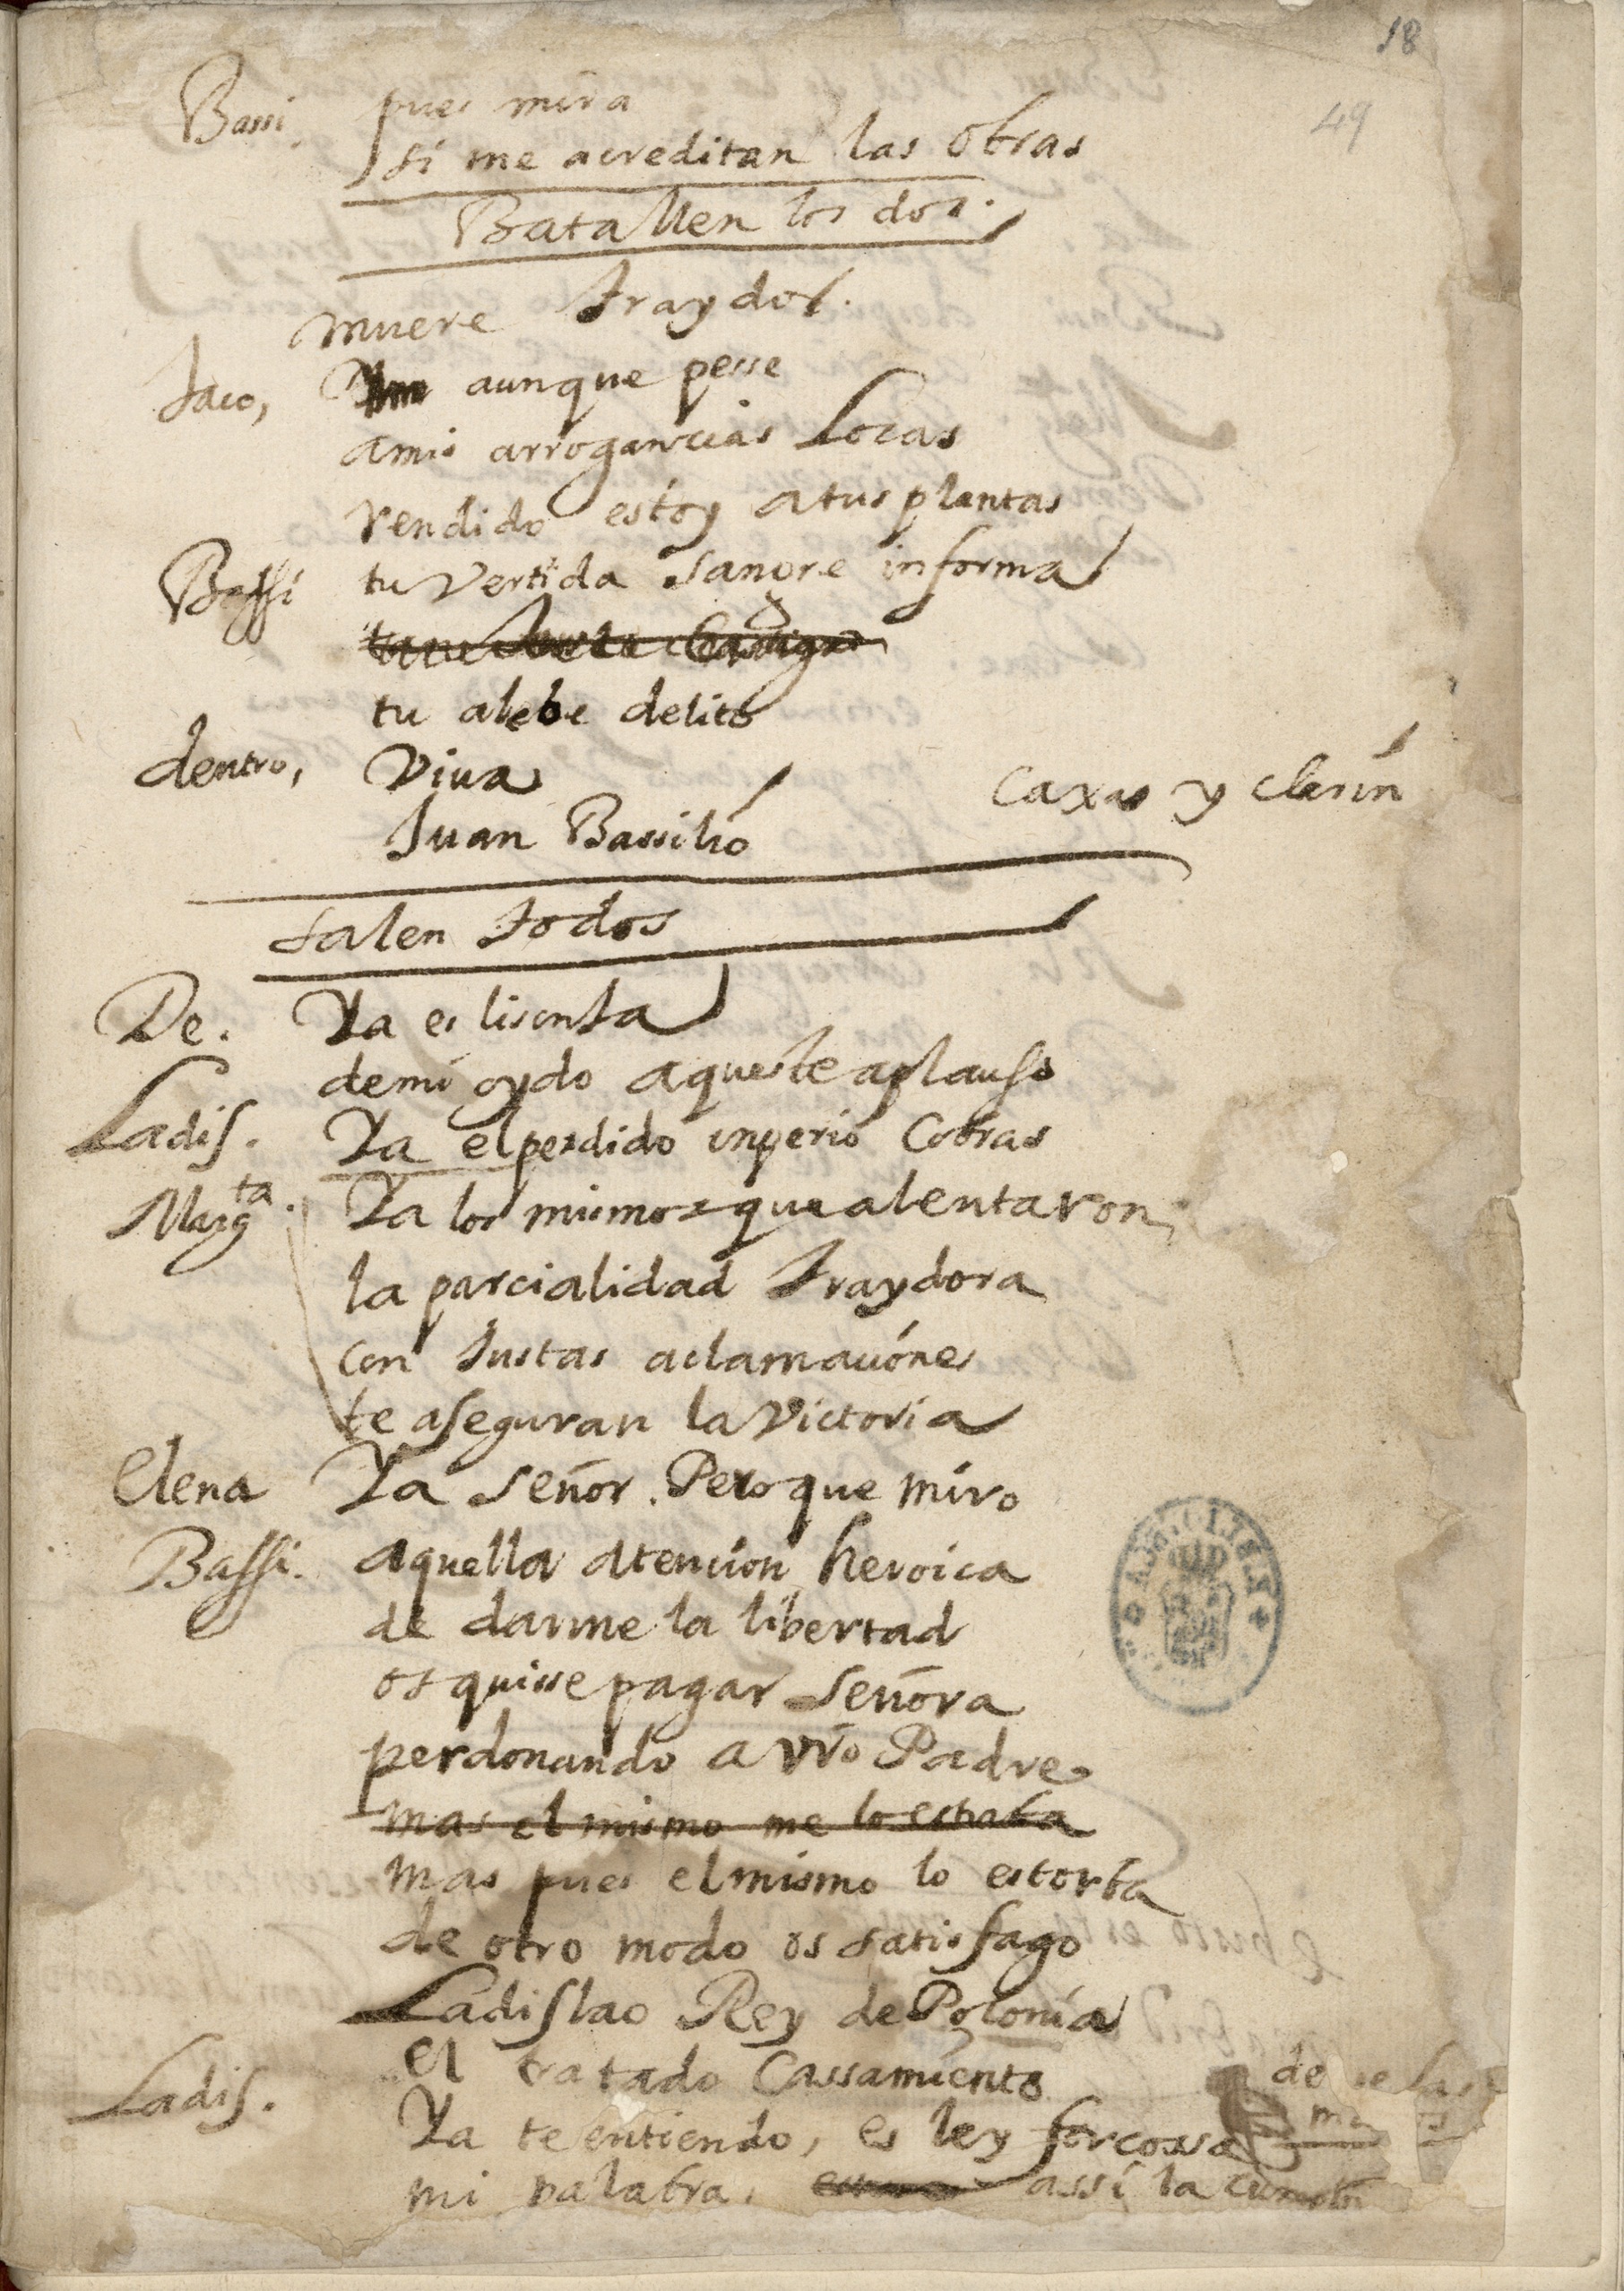 18
49
Bassi. pues mira
si me acreditan las obras
Batallen los dos.
muere traydor.
Jaco, aunque pesse
amis arrogancias locas
rendido estoy atus plantas
Bassi tu vertida sangre informa
tu alebe delito
dentro, Viua Caxas y clarin
Juan Bassilio
salen todos
De. Ya es lisonja
demi oydo aqueste aplauso
Ladis. Ya el perdido inperio Cobras
Margta. Ya los mismos que alentaron
la parcialidad traydora
con Justas aclamaciones
te aseguran la Victoria
Elena Ya señor. Pero que miro
Bassi. aquella atencion heroica
de darme la libertad
os quisse pagar señora
perdonando a vro Padre
mas el mismo me lo estorba
mas pues el mismo lo estorba
de otro modo os satisfago
Ladislao Rey de Polonia
el tratado Cassamiento
Ladis. Ya te entiendo, es ley forcossa
mi palabra, assi la